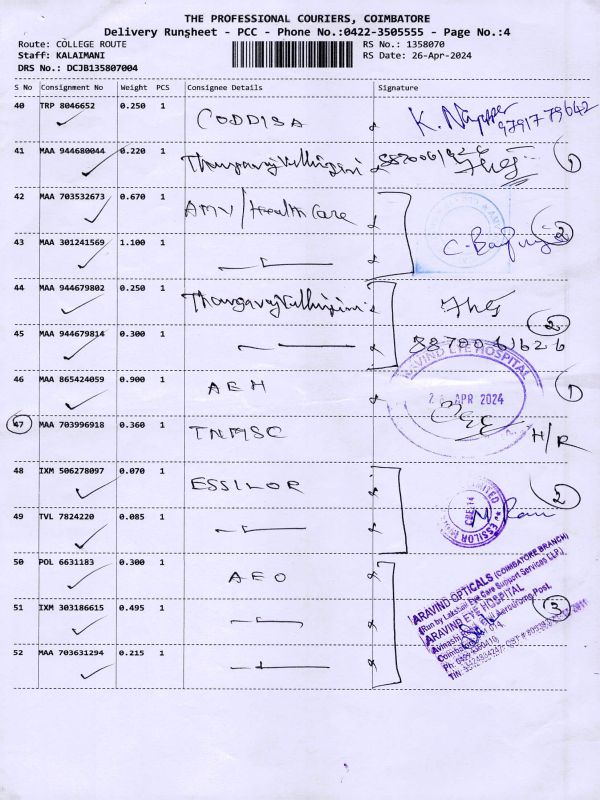 THE PROFESSIONAL COURIERS, COIMBATORE
Delivery Runsheet - PCC - Phone No.:0422-3505555 - Page No.:4
Route: COLLEGE ROUTE
Staff: KALAIMANI
DRS No.: DCJB135807004
RS No.: 1358070
RS Date: 26-Apr-2024
S No Consignment No Weight PCS Consignee Details Signature
40 TRP 8046652 0.250 1 CODDISA K. 9791779642
41 MAA 944680044 0.220 1 1
42 MAA 703532673 0.670 1 AMV/Health Care
43 MAA 301241569 1.100 1 2
44 MAA 944679802 0.250 1
45 MAA 944679814 0.300 1 2
46 MAA 865424059 0.900 1 AEH 1
ARAVIND EYE HOSPITAL
APR 2024
47 MAA 703996918 0.360 1 TNMSC H/R
48 IXM 506278097 0.070 1 ESSILOR 2
49 TVL 7824220 0.085 1
50 POL 6631183 0.300 1 AEO
51 IXM 303186615 0.495 1 3
52 MAA 703631294 0.215 1
ARAVIND OPTICALS (COIMBATORE BRANCH)
(Run by Lakshmi Eye Care Support Services LLP)
ARAVIND EYE HOSPITAL